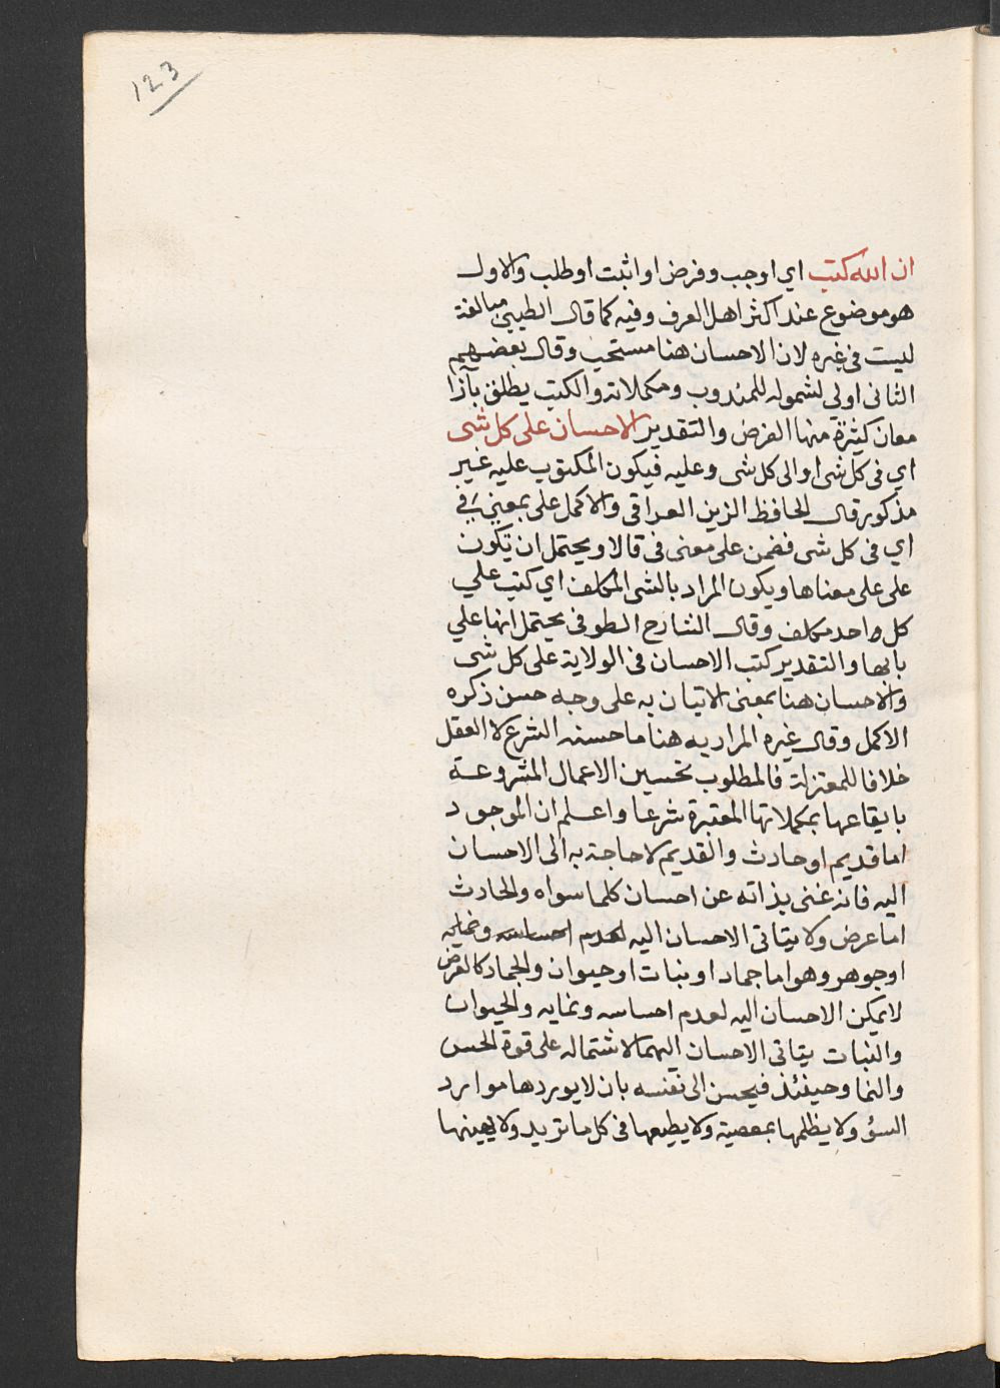 123
ان الله كتب اي اوجب وفرض او اثبت او طلب والاول
هو موضوع عند اكثر اهل العرف وفيه كما قال الطيبي مبالغة
ليست في غيره لان الاحسان هنا مستحب وقال بعضهم
الثاني اولي لشموله للمندوب ومكملاته والكتب يطلق بآزا
معان كثيرة منها الفرض والتقدير الاحسان على كل شي
اي في كل شي او الى كل شي وعليه فيكون المكتوب عليه غير
مذكور قال الحافظ الزين العراقي والاكمل على بمعني في
اي في كل شي فضمن على معنى في قالا ويحتمل ان تكون
على على معناها ويكون المراد بالشي المكلف اي كتب علي
كل واحد مكلف وقال الشارح الطوفي يحتمل انها علي
بابها والتقدير كتب الاحسان في الولاية على كل شي
والاحسان هنا بمعنى الاتيان به على وجه حسن ذكره
الاكمل وقال غيره المراد به هنا ما حسنه الشرع لا العقل
خلافا للمعتزلة فالمطلوب تحسين الاعمال المشروعة
بايقاعها بمكملاتها المعتبرة شرعا واعلم ان الموجود
اما قديم او حادث والقديم لا حاجة به الى الاحسان
اليه فانه غني بذاته عن احسان كلما سواه والحادث
اما عرض ولا يتاتى الاحسان اليه لعدم احساسه ونمايه
او جوهر وهو اما جماد او نبات او حيوان والجماد كالعرض
لا يمكن الاحسان اليه لعدم احساسه ونمايه والحيوان
والنبات يتاتى الاحسان اليهما لاشتماله على قوة الحس
والنما وحينئذ فيحسن الى نفسه بان لا يوردها موارد
السؤ ولا يظلمها بمعصية ولا يطيعها في كل ما تريد ولا يهينها